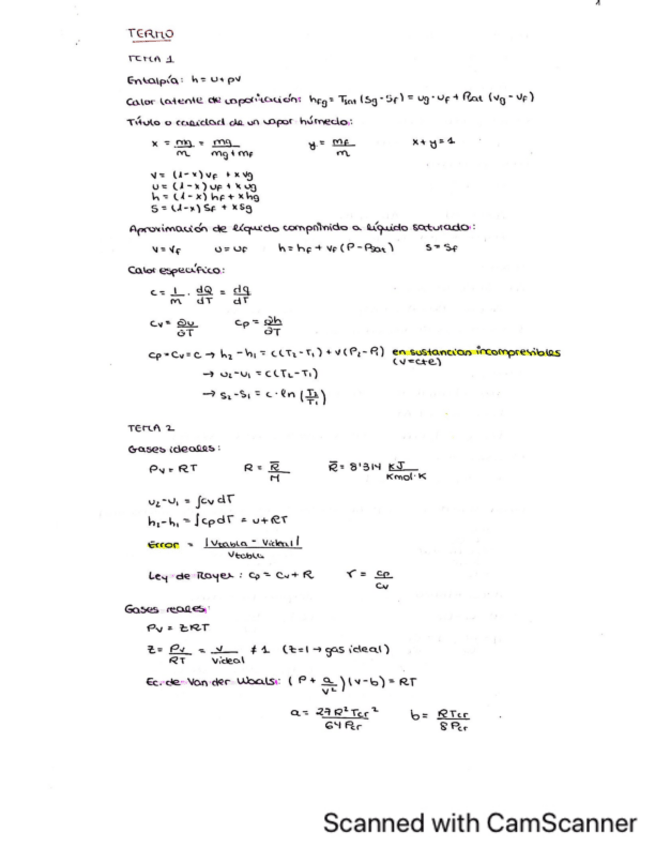 TERMO
TEMA 1
Entalpía: h = u + pv
Calor latente de vaporización: hfg = Tsat (sg - sf) = ug - uf + Psat (vg - vf)
Título o calidad de un vapor húmedo:
x = mg/m = mg/(mg + mf)    y = mf/m    x + y = 1
v = (1-x) vf + x vg
u = (1-x) uf + x ug
h = (1-x) hf + x hg
s = (1-x) sf + x sg
Aproximación de líquido comprimido a líquido saturado:
v = vf    u = uf    h = hf + vf (P - Psat)    s = sf
Calor específico:
c = 1/m · dQ/dT = dq/dT
cv = ∂u/∂T    cp = ∂h/∂T
cp = cv = c → h2 - h1 = c(T2 - T1) + v(P2 - P1) en sustancias incompresibles
(v = cte)
→ u2 - u1 = c(T2 - T1)
→ s2 - s1 = c · ln (T2/T1)
TEMA 2
Gases ideales:
Pv = RT    R = R̅/M    R̅ = 8'314 KJ/Kmol·K
u2 - u1 = ∫cv dT
h2 - h1 = ∫cp dT = u + RT
Error = |Vtabla - Videal|/Vtabla
Ley de Mayer: cp = cv + R    γ = cp/cv
Gases reales:
Pv = ZRT
Z = Pv/RT = v/videal ≠ 1 (Z=1 → gas ideal)
Ec. de Van der Waals: (P + a/v²)(v - b) = RT
a = 27R²Tcr²/64Pcr    b = RTcr/8Pcr
Scanned with CamScanner